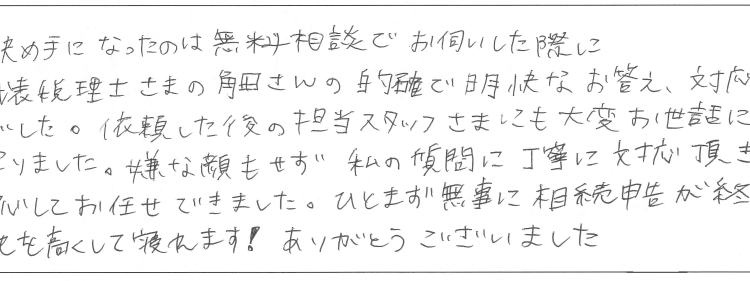 決め手になったのは無料相談でお伺いした際に
税理士さまの角田さんの的確で明快なお答え、対応
した。依頼した後の担当スタッフさまにも大変お世話に
りました。嫌な顔もせず 私の質問に丁寧に対応頂き
してお任せできました。ひとまず無事に相続申告が終
を高くして寝れます! ありがとうございました